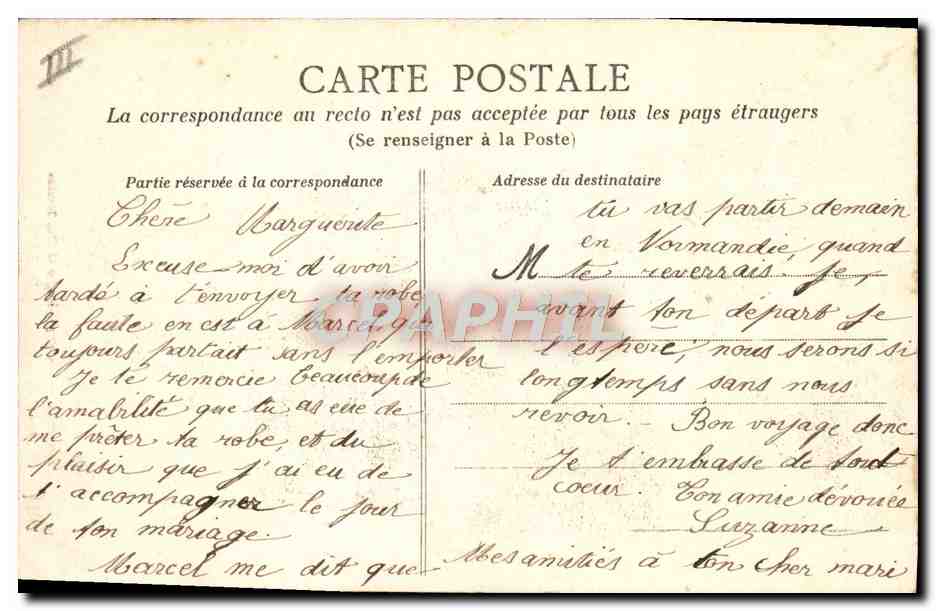 III
CARTE POSTALE
La correspondance au recto n'est pas acceptée par tous les pays étrangers
(Se renseigner à la Poste)
Partie réservée à la correspondance
Chère Marguerite
Excuse-moi d'avoir
tardé à t'envoyer ta robe,
la faute en est à Marcel qui
toujours partait sans l'emporter
Je te remercie beaucoup de
l'amabilité que tu as eue de
me prêter ta robe, et du
plaisir que j'ai eu de
t'accompagner le jour
de ton mariage.
Marcel me dit que
Adresse du destinataire
tu vas partir demain
en Normandie, quand
M te reverrais-je,
avant ton départ je
l'espère, nous serons si
longtemps sans nous
revoir. - Bon voyage donc
Je t'embrasse de tout
coeur. Ton amie dévouée
Suzanne
Mes amitiés à ton cher mari
CPAPHIL